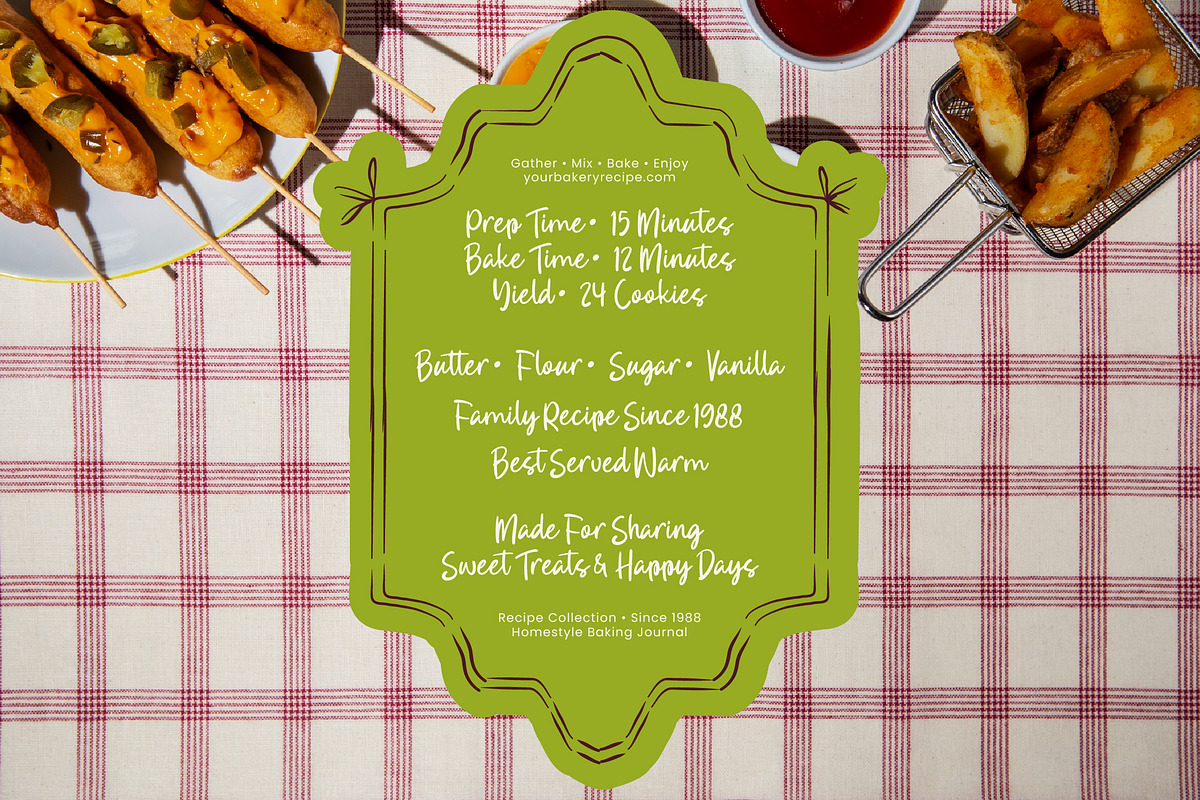 Gather • Mix • Bake • Enjoy
yourbakeryrecipe.com
Prep Time • 15 Minutes
Bake Time • 12 Minutes
Yield • 24 Cookies
Butter • Flour • Sugar • Vanilla
Family Recipe Since 1988
Best Served Warm
Made For Sharing
Sweet Treats & Happy Days
Recipe Collection • Since 1988
Homestyle Baking Journal